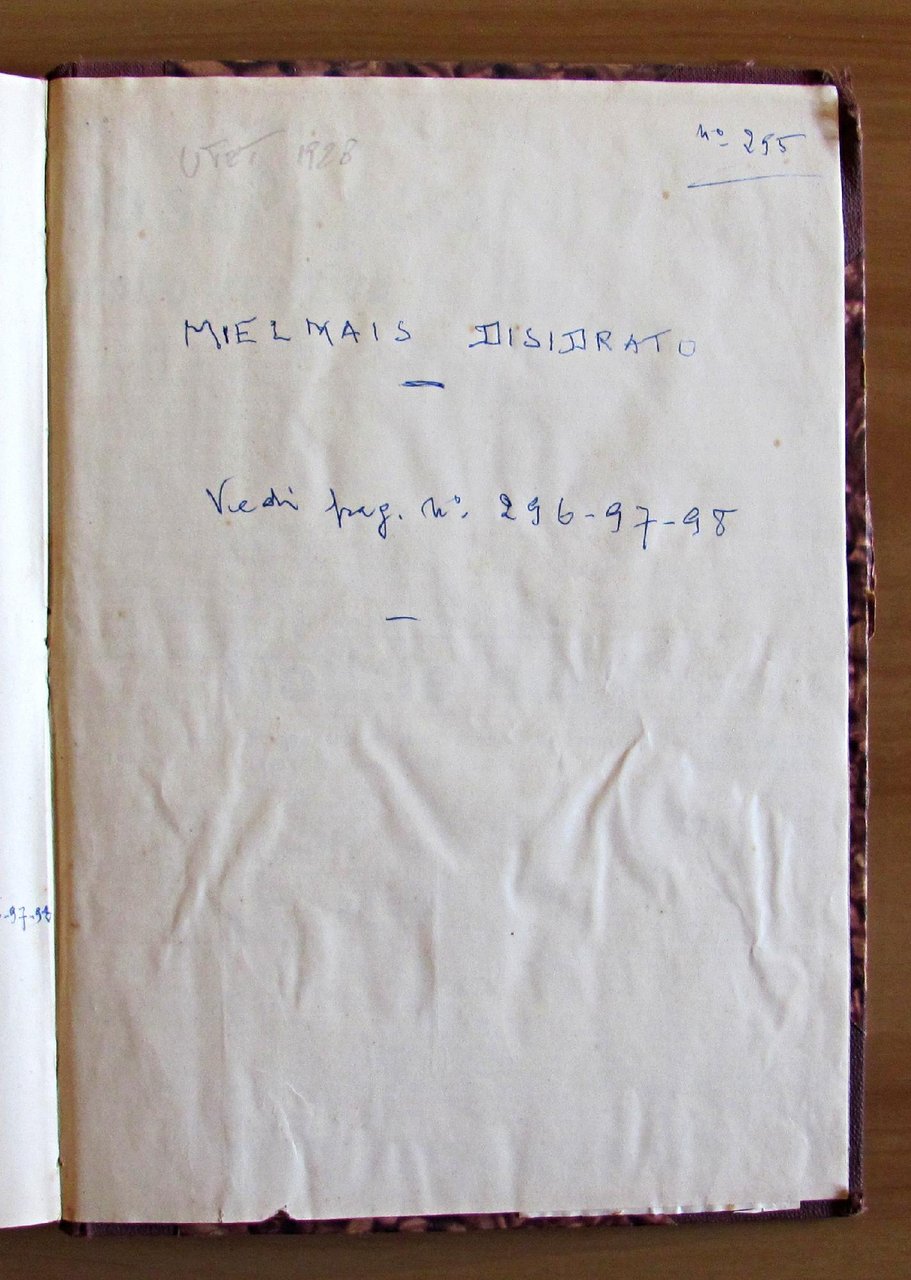 nº 295
UTET 1928
MIELMAIS DISIDRATO
Vedi pag. nº. 296-97-98
-97-98